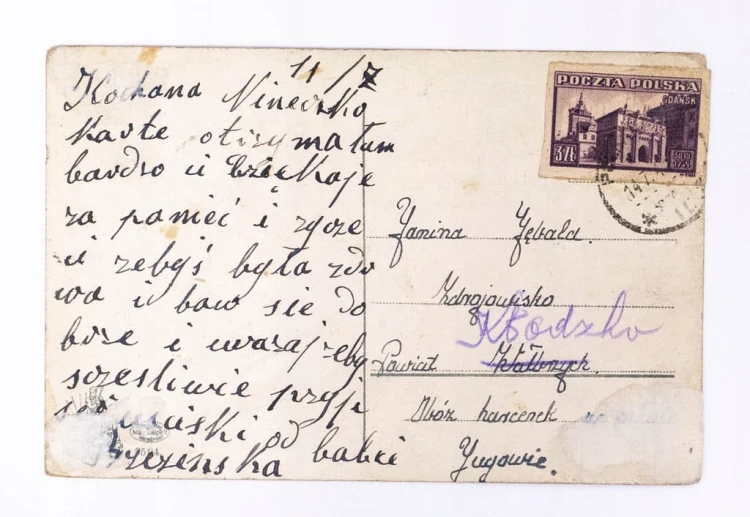 11/7
Kochana Nineczko
Karte otrzymałam
bardzo ci dziekoje
za pamieć i rzycze
ci zebyś była zdo
wa i baw sie do
bże i uwazaj zeby
sczesliwie przyj
uciski od babci
Brzezinska
POCZTA POLSKA
GDAŃSK
3 Zł
Janina Jębala.
Zdrojowisko
Kłodzko
Powiat Wałbrzych.
Obóz harcerek
Jugowie.